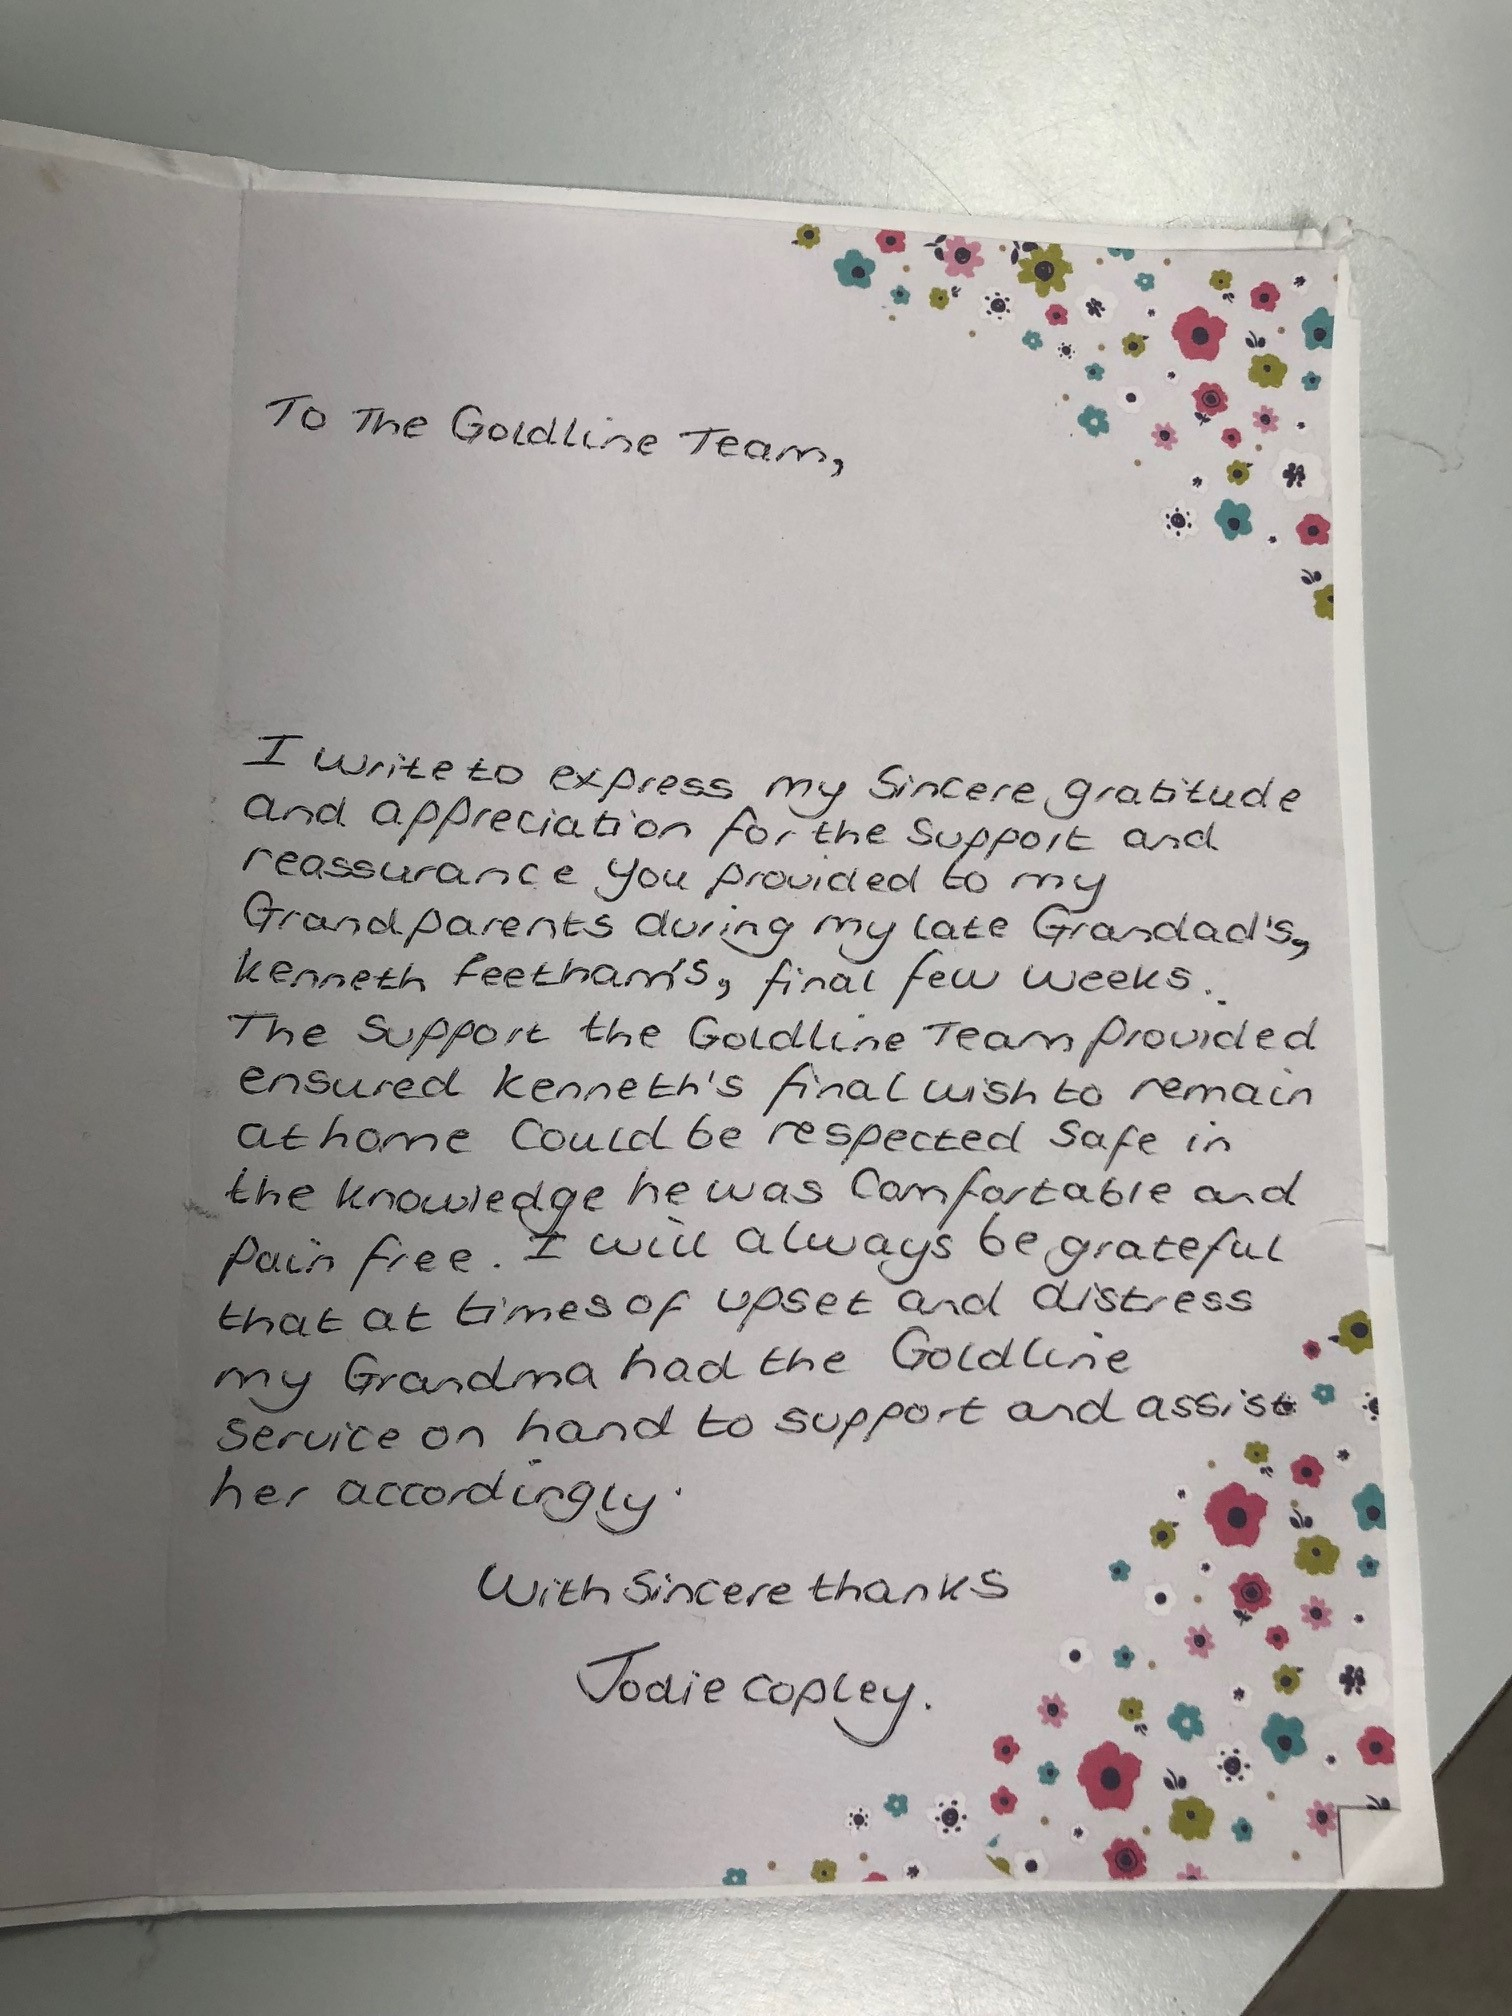 To The Goldline Team,
I write to express my Sincere gratitude
and appreciation for the Support and
reassurance you provided to my
Grandparents during my late Grandad's,
Kenneth Feetham's, final few weeks.
The Support the Goldline Team provided
ensured Kenneth's final wish to remain
at home Could be respected Safe in
the knowledge he was Comfortable and
pain free. I will always be grateful
that at times of upset and distress
my Grandma had the Goldline
Service on hand to support and assist
her accordingly.
With Sincere thanks
Jodie Copley.